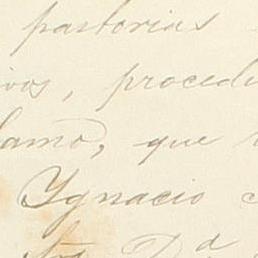 pastorias
ivos, procedi
lamo, que
Ygnacio
D.ª